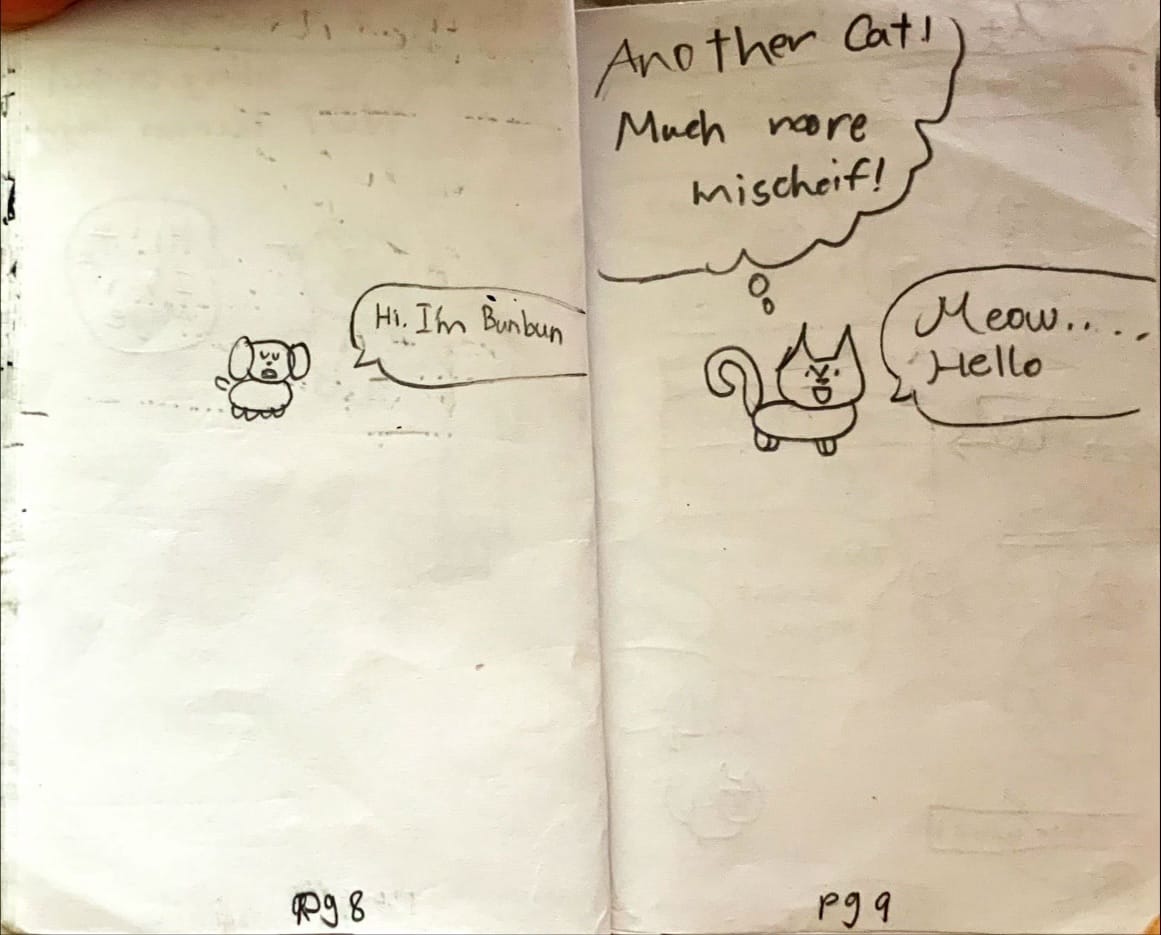 Hi. I'm Bunbun
pg 8
Another Cat!
Much more
mischeif!
Meow.....
Hello
pg 9